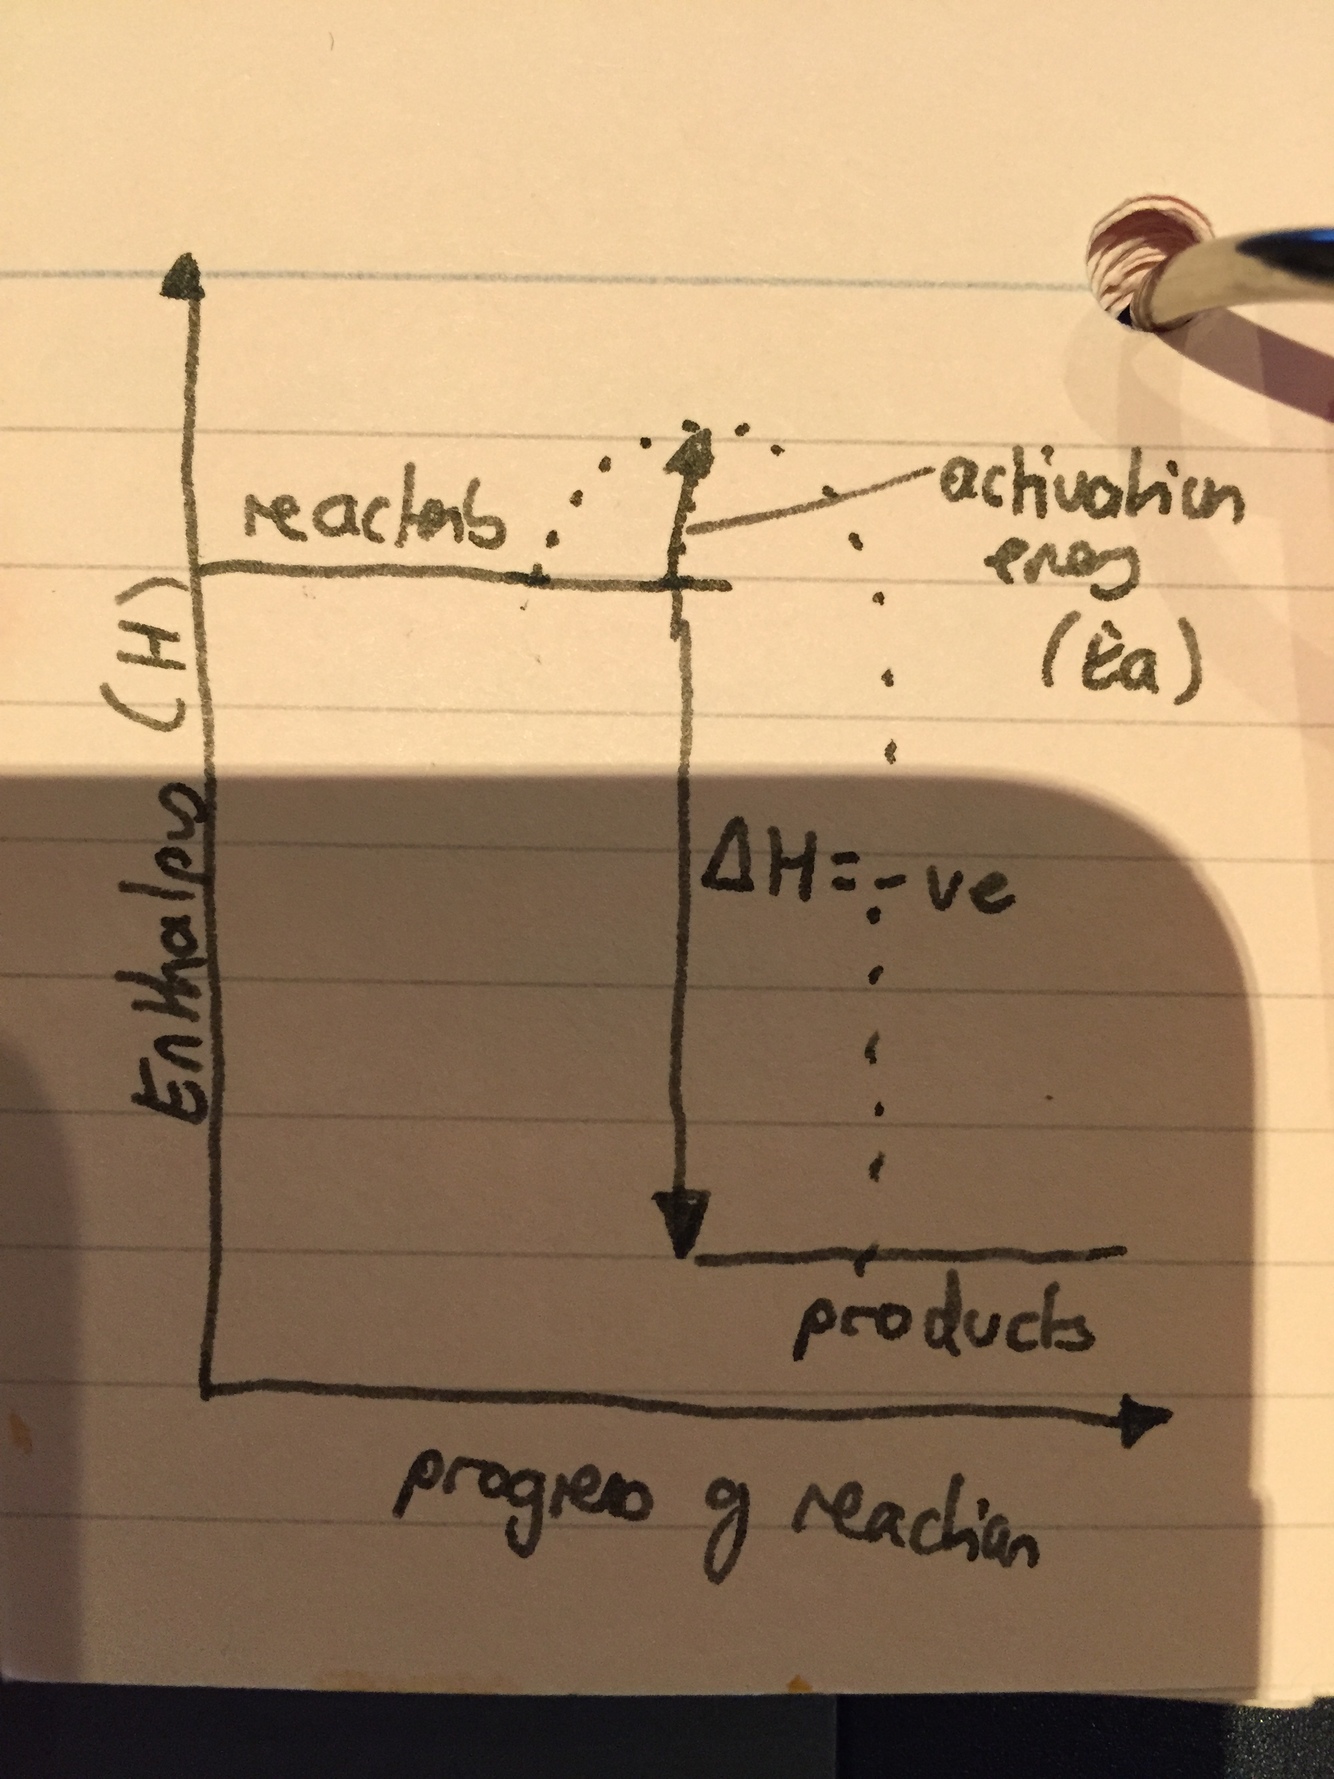 reactants
activation
energy
(Ea)
Enthalpy (H)
ΔH = -ve
products
progress of reaction